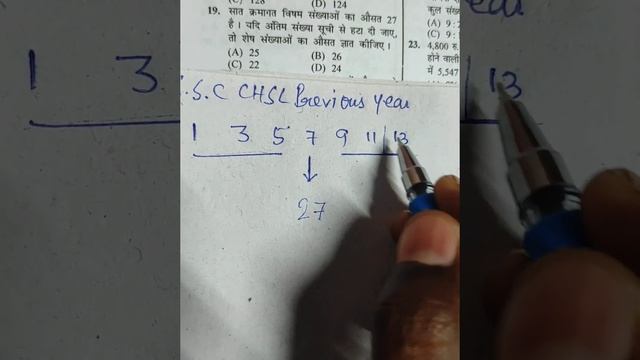 (C) 128 (D) 124
19. सात क्रमागत विषम संख्याओं का औसत 27
है। यदि अंतिम संख्या सूची से हटा दी जाए,
तो शेष संख्याओं का औसत ज्ञात कीजिए।
(A) 25 (B) 26
(C) 22 (D) 24
कुल संख्
(A) 9 :
(C) 9 :
23. 4,800 रु.
होने वाली
में 5,547
S.C CHSL Previous year
1 3 5 7 9 11 13
27
1 3
13